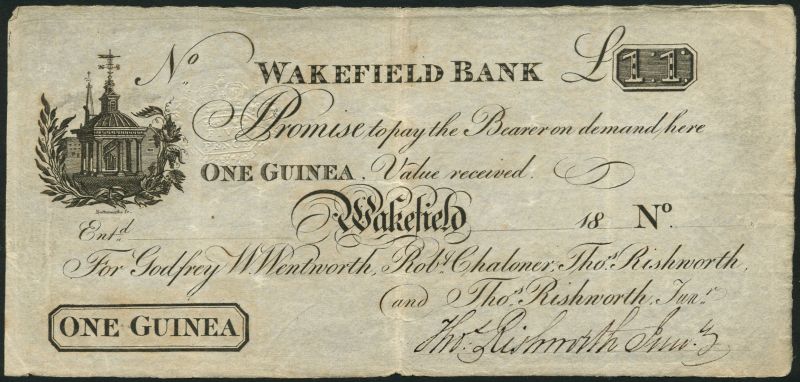 No. WAKEFIELD BANK £1.1:
Promise to pay the Bearer on demand, here
ONE GUINEA. Value received.
Wakefield 18 No.
Entd.
For Godfrey W. Wentworth, Robt. Chaloner, Thos. Rishworth,
and Thos. Rishworth, Junr.
ONE GUINEA
Thos. Rishworth Junr.